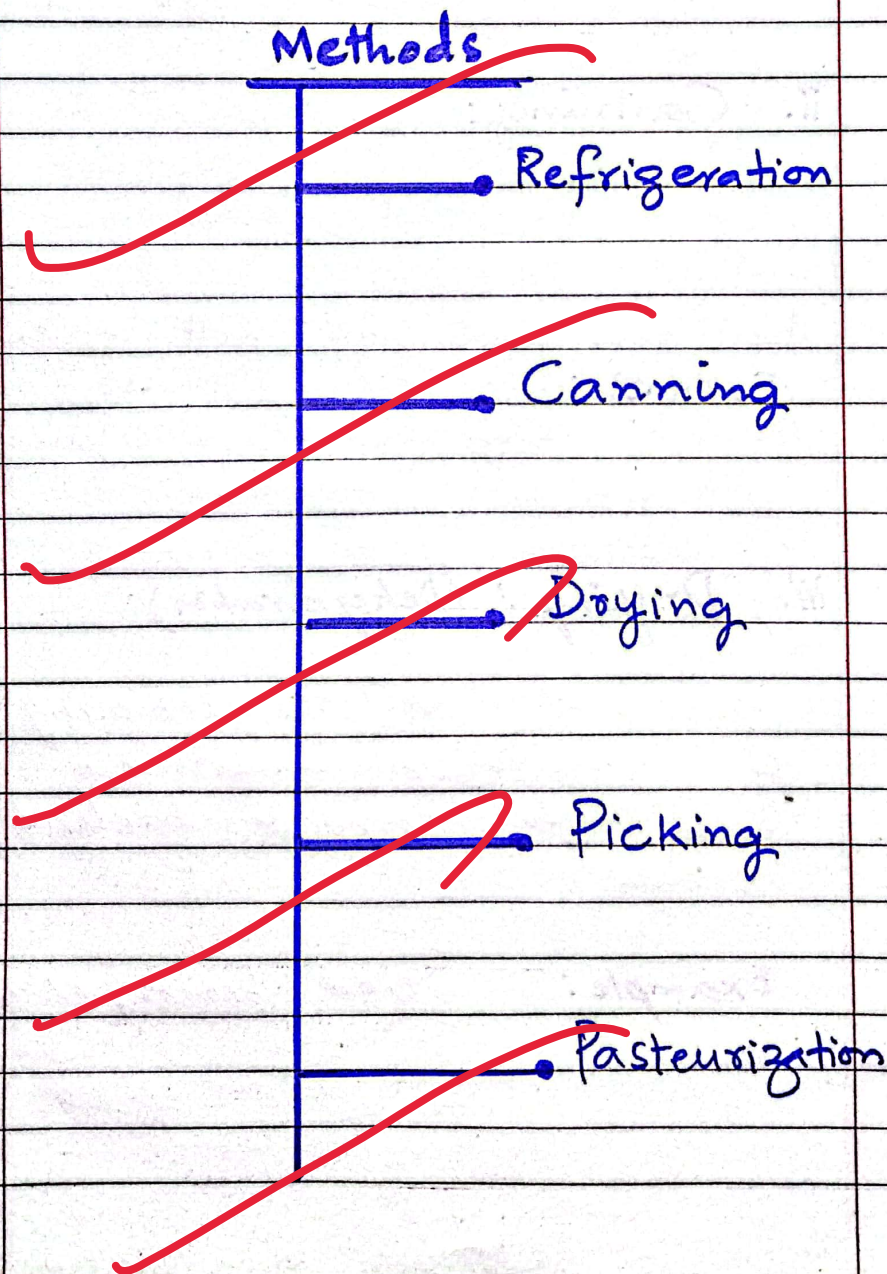 Methods
Refrigeration
Canning
Drying
Picking
Pasteurization